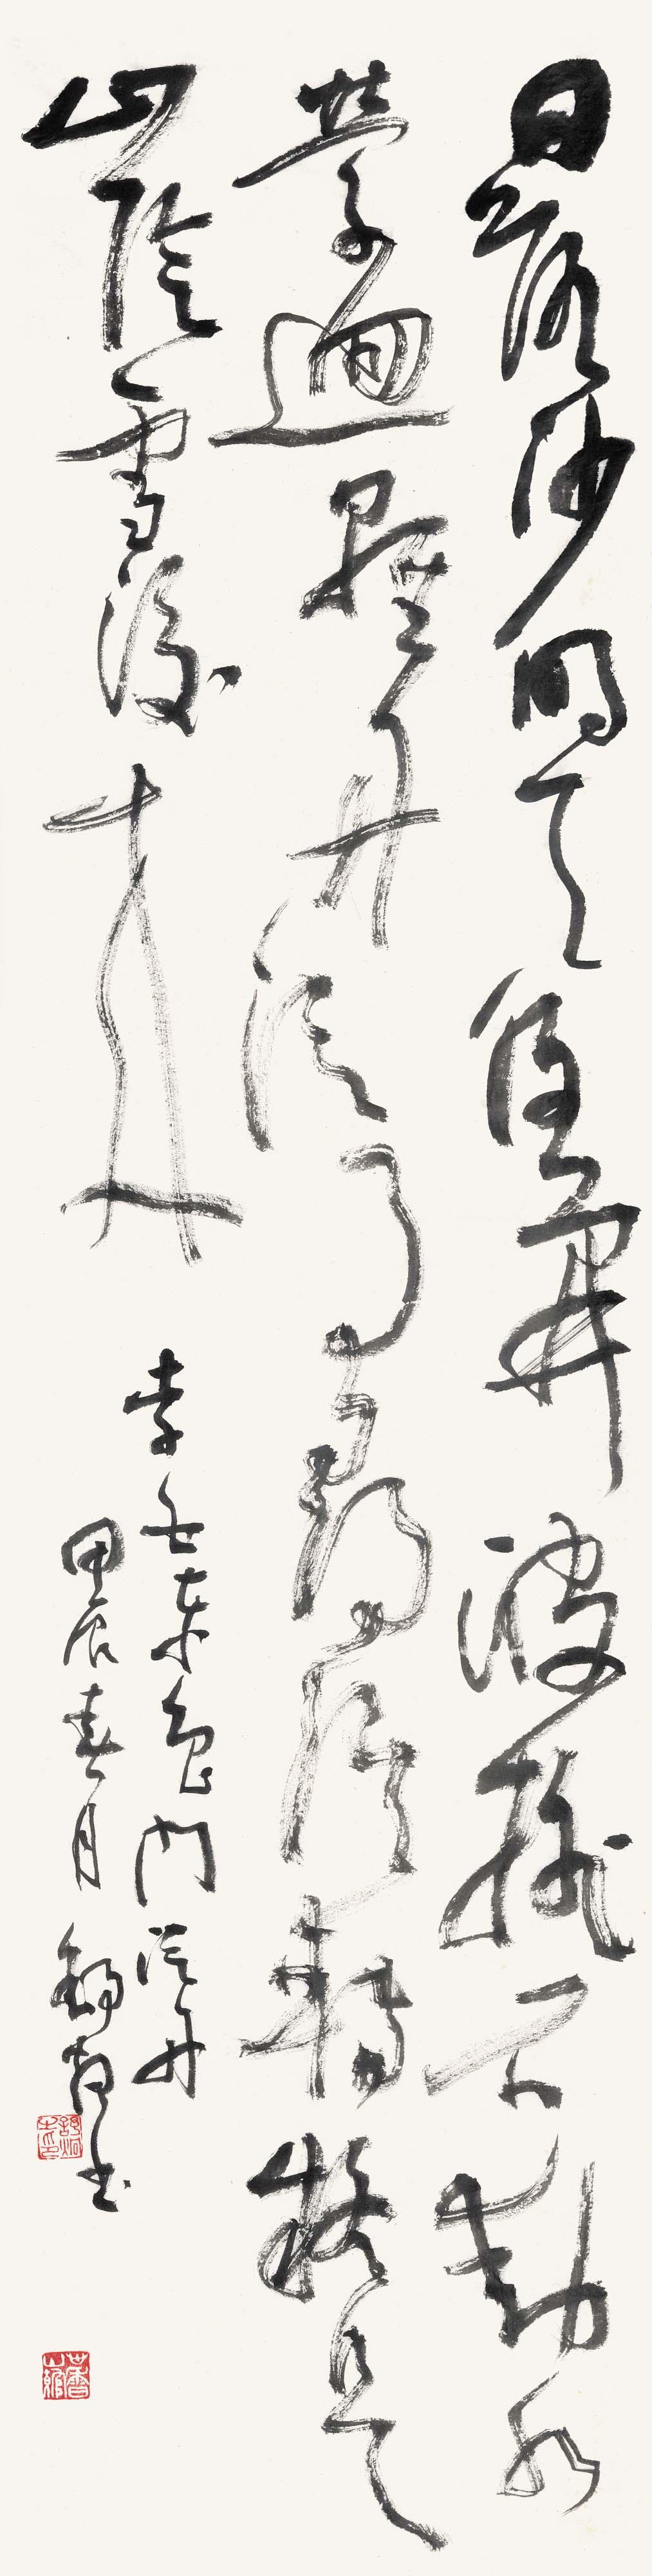 日落沙明天倒開波搖石動水
縈迴輕舟泛月尋溪轉疑是
山陰雪後來
李白東魯門泛舟
甲辰春月舒炯書